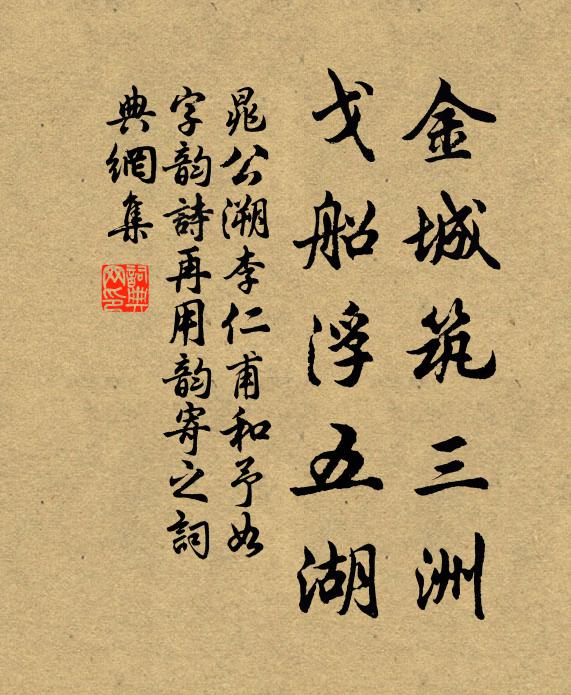 金城筑三洲
戈船浮五湖
晁公溯李仁甫和予如
字韵詩再用韵寄之詞
典網集
詞典
网印